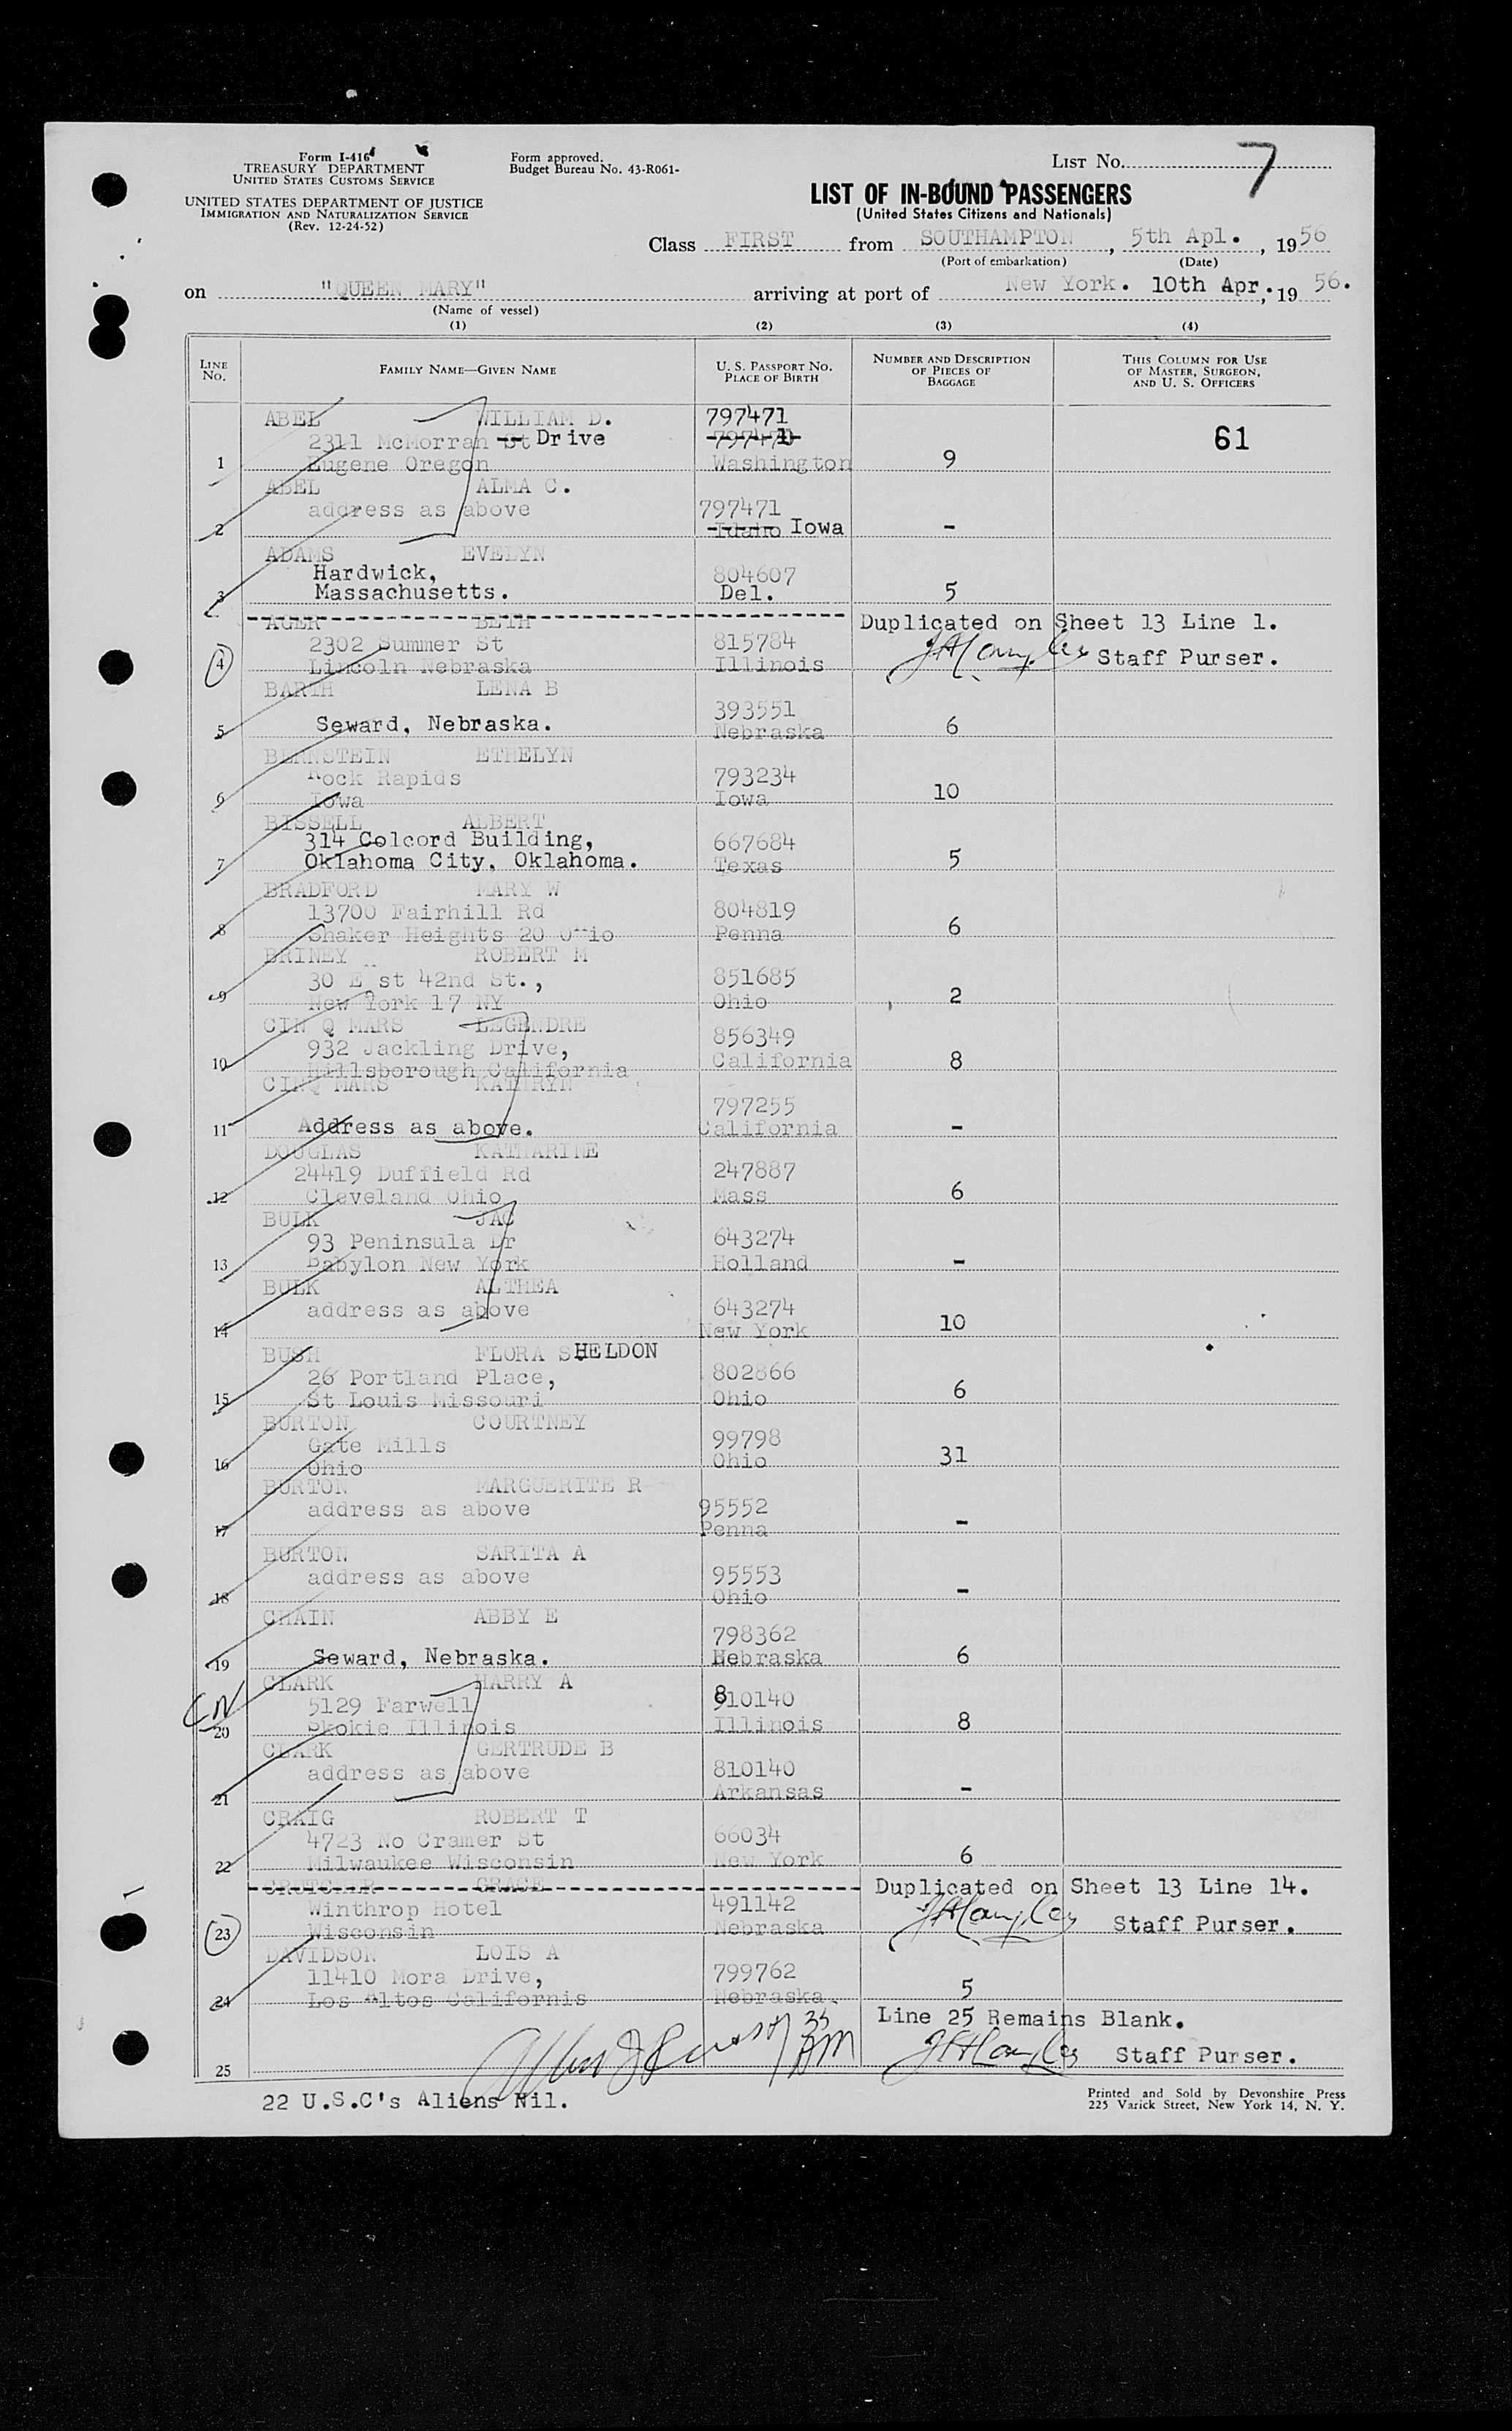 Form I-416
TREASURY DEPARTMENT
UNITED STATES CUSTOMS SERVICE
UNITED STATES DEPARTMENT OF JUSTICE
IMMIGRATION AND NATURALIZATION SERVICE
(Rev. 12-24-52)
Form approved.
Budget Bureau No. 43-R061-
LIST NO. 7
LIST OF IN-BOUND PASSENGERS
(United States Citizens and Nationals)
Class FIRST from SOUTHAMPTON, 5th Apl., 1956
(Port of embarkation) (Date)
on "QUEEN MARY" arriving at port of New York. 10th Apr., 19 56.
(Name of vessel)
(1) (2) (3) (4)
LINE NO. FAMILY NAME—GIVEN NAME U. S. PASSPORT NO. PLACE OF BIRTH NUMBER AND DESCRIPTION OF PIECES OF BAGGAGE THIS COLUMN FOR USE OF MASTER, SURGEON, AND U. S. OFFICERS
ABEL WILLIAM D. 797471
2311 McMorran St Drive 61
1 Eugene Oregon Washington 9
ABEL ALMA C.
address as above 797471
2 Idaho Iowa -
ADAMS EVELYN
Hardwick, 804607
3 Massachusetts. Del. 5
AGER BETH Duplicated on Sheet 13 Line 1.
2302 Summer St 815784
4 Lincoln Nebraska Illinois Staff Purser.
BARTH LENA B
393551
5 Seward, Nebraska. Nebraska 6
BERNSTEIN ETHELYN
Rock Rapids 793234
6 Iowa Iowa 10
BISSELL ALBERT
314 Colcord Building, 667684
7 Oklahoma City, Oklahoma. Texas 5
BRADFORD MARY W
13700 Fairhill Rd 804819
8 Shaker Heights 20 Ohio Penna 6
BRINEY ROBERT M
30 E st 42nd St., 851685
9 New York 17 NY Ohio 2
CIN Q MARS LEGENDRE
932 Jackling Drive, 856349
10 Hillsborough California California 8
CINQ MARS KATHRYN
797255
11 Address as above. California -
DOUGLAS KATHARINE
24419 Duffield Rd 247887
12 Cleveland Ohio Mass 6
BULK JAC
93 Peninsula Dr 643274
13 Babylon New York Holland -
BULK ALTHEA
address as above 643274
14 New York 10
BUSH FLORA SHELDON
26 Portland Place, 802866
15 St Louis Missouri Ohio 6
BURTON COURTNEY
Gate Mills 99798
16 Ohio Ohio 31
BURTON MARGUERITE R
address as above 95552
17 Penna -
BURTON SARITA A
address as above 95553
18 Ohio -
CHAIN ABBY E
798362
19 Seward, Nebraska. Nebraska 6
CLARK HARRY A
CN 5129 Farwell 810140
20 Skokie Illinois Illinois 8
CLARK GERTRUDE B
address as above 810140
21 Arkansas -
CRAIG ROBERT T
4723 No Cramer St 66034
22 Milwaukee Wisconsin New York 6
CRUTCHER GRACE Duplicated on Sheet 13 Line 14.
Winthrop Hotel 491142
23 Wisconsin Nebraska Staff Purser.
DAVIDSON LOIS A
11410 Mora Drive, 799762
24 Los Altos Californis Nebraska. 5
Line 25 Remains Blank.
25 Staff Purser.
22 U.S.C's Aliens Nil.
Printed and Sold by Devonshire Press
225 Varick Street, New York 14, N. Y.